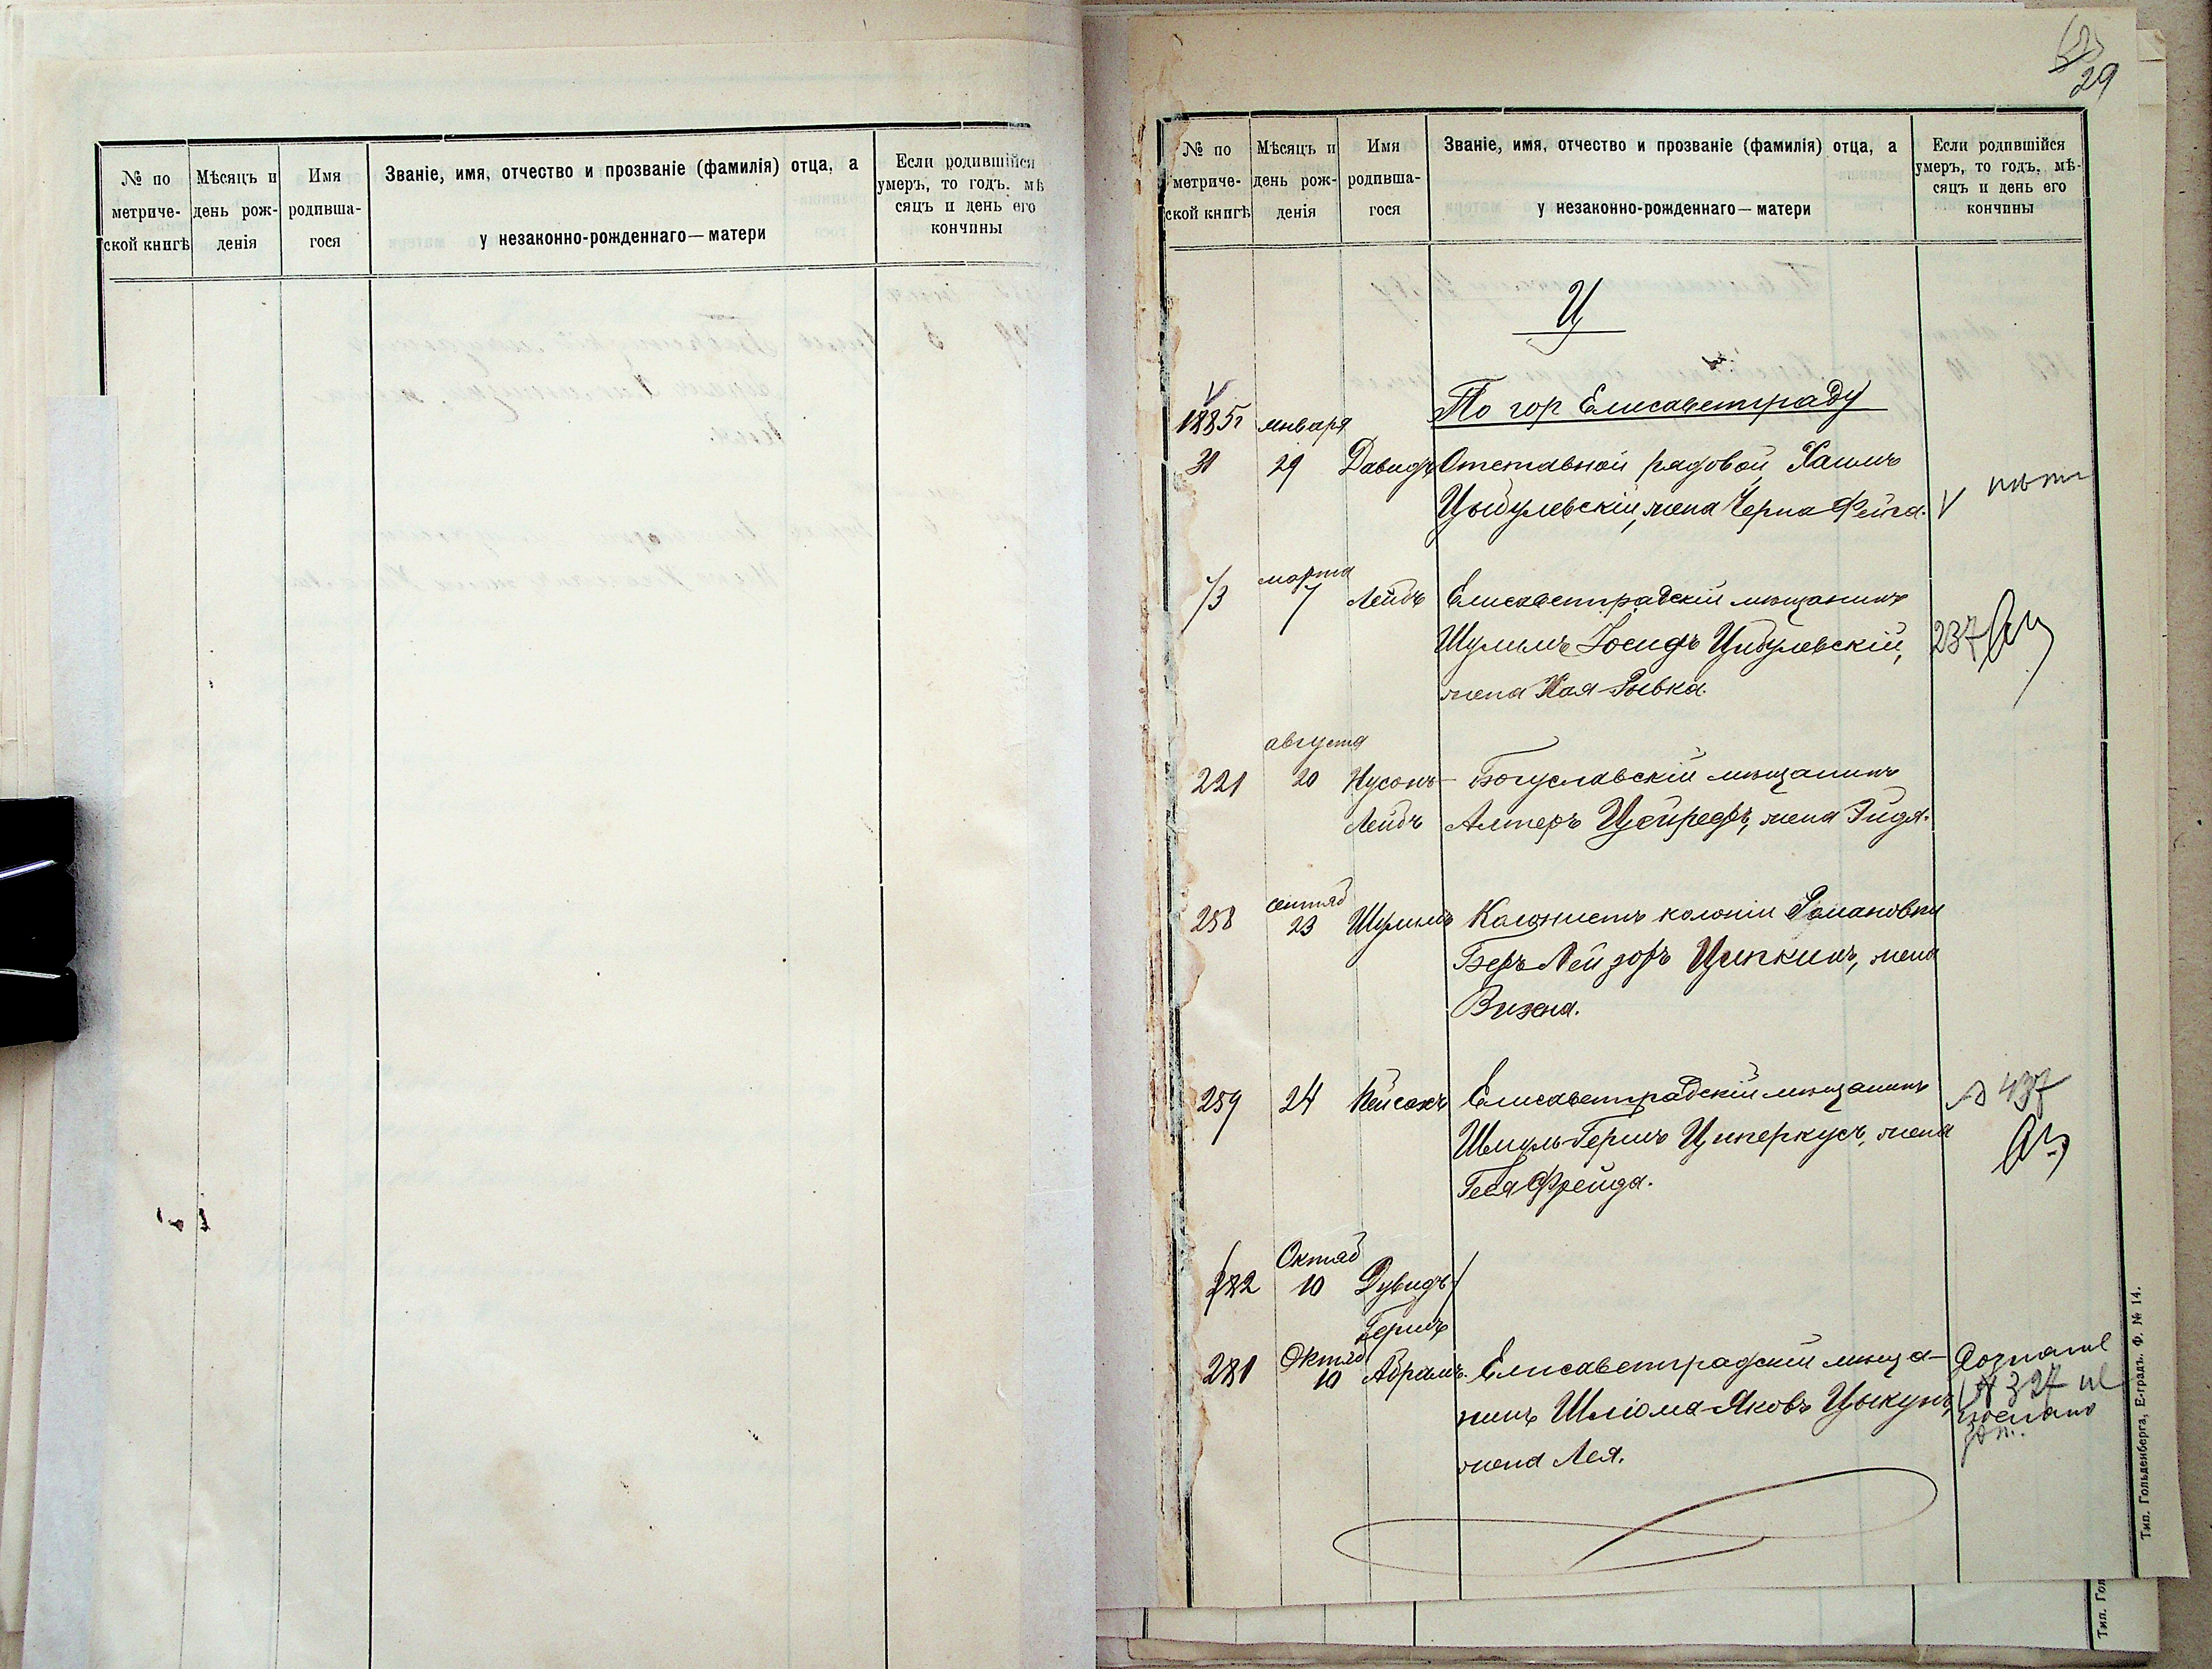 № по
метриче-
ской книгѣ
Мѣсяцъ и
день рож-
денія
Имя
родивша-
гося
Званіе, имя, отчество и прозваніе (фамилія) отца, а
у незаконно-рожденнаго—матери
Если родившійся
умеръ, то годъ, мѣ
сяцъ и день его
кончины
29
№ по
метриче-
ской книгѣ
Мѣсяцъ и
день рож-
денія
Имя
родивша-
гося
Званіе, имя, отчество и прозваніе (фамилія) отца, а
у незаконно-рожденнаго—матери
Если родившійся
умеръ, то годъ, мѣ-
сяцъ и день его
кончины
Ц
По гор Елисаветграду
1885г января
31 29 Давидъ Отставной рядовой Хаимъ
Цыбулевскій, жена Черна Фейга.
марта
73 7 Лейбъ Елисаветградскій мѣщанинъ
Шулимъ Іосифъ Цибулевскій, 237
жена Хая-Рывка.
августа
221 20 Нусонъ- Богуславскій мѣщанинъ
Лейбъ Алтеръ Цейрефъ, жена Эйдя.
сентяб
258 23 Шулимъ Колонистъ колоніи Романовки
Беръ Лейзоръ Ципкинъ, жена
259 24 Пейсахъ Елисаветградскій мѣщанинъ 437
Шмуль-Гершъ Циперкусъ, жена
Геся Фрейда.
Октяб
282 10 Дувидъ
Гершъ
Октяб
281 10 Абрамъ. Елисаветградскій мѣща-
нинъ Шліома-Яковъ Цыкунъ,
жена Лея.
№ 327
Тип. Гольденберга, Е-градъ. Ф. № 14.
Тип. Гол